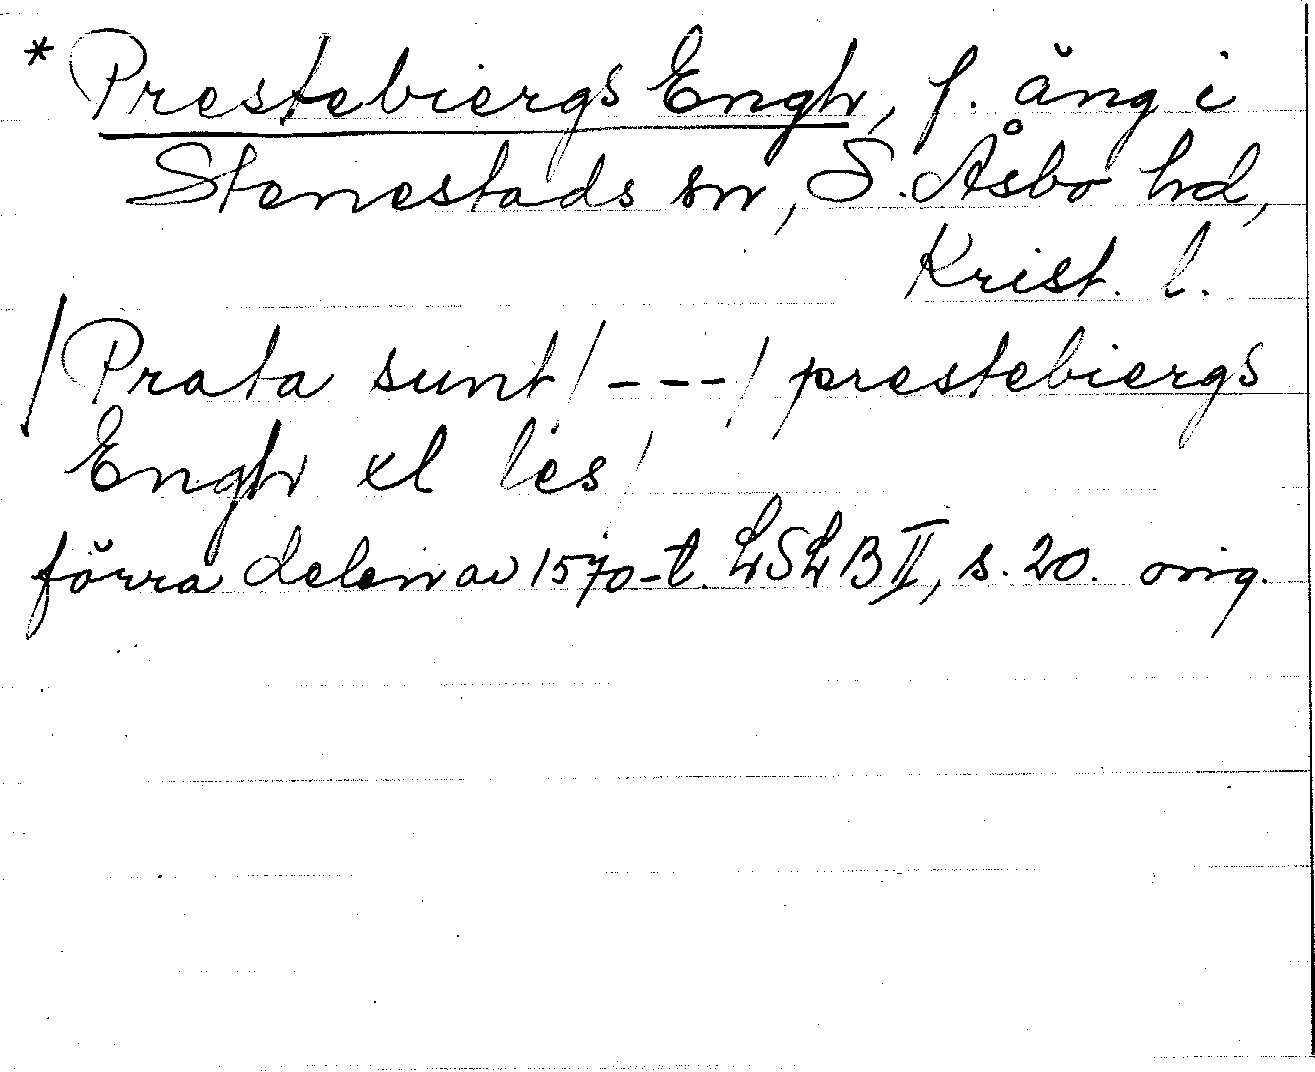 * Prestebiergs Engh, f. äng i
Stenestads sn, S. Åsbo hd,
Krist. l.
/Prata sunt/ --- / prestebiergs
Engh xl les/
förra delen av 1570-t. LSLB II, s. 20. orig.